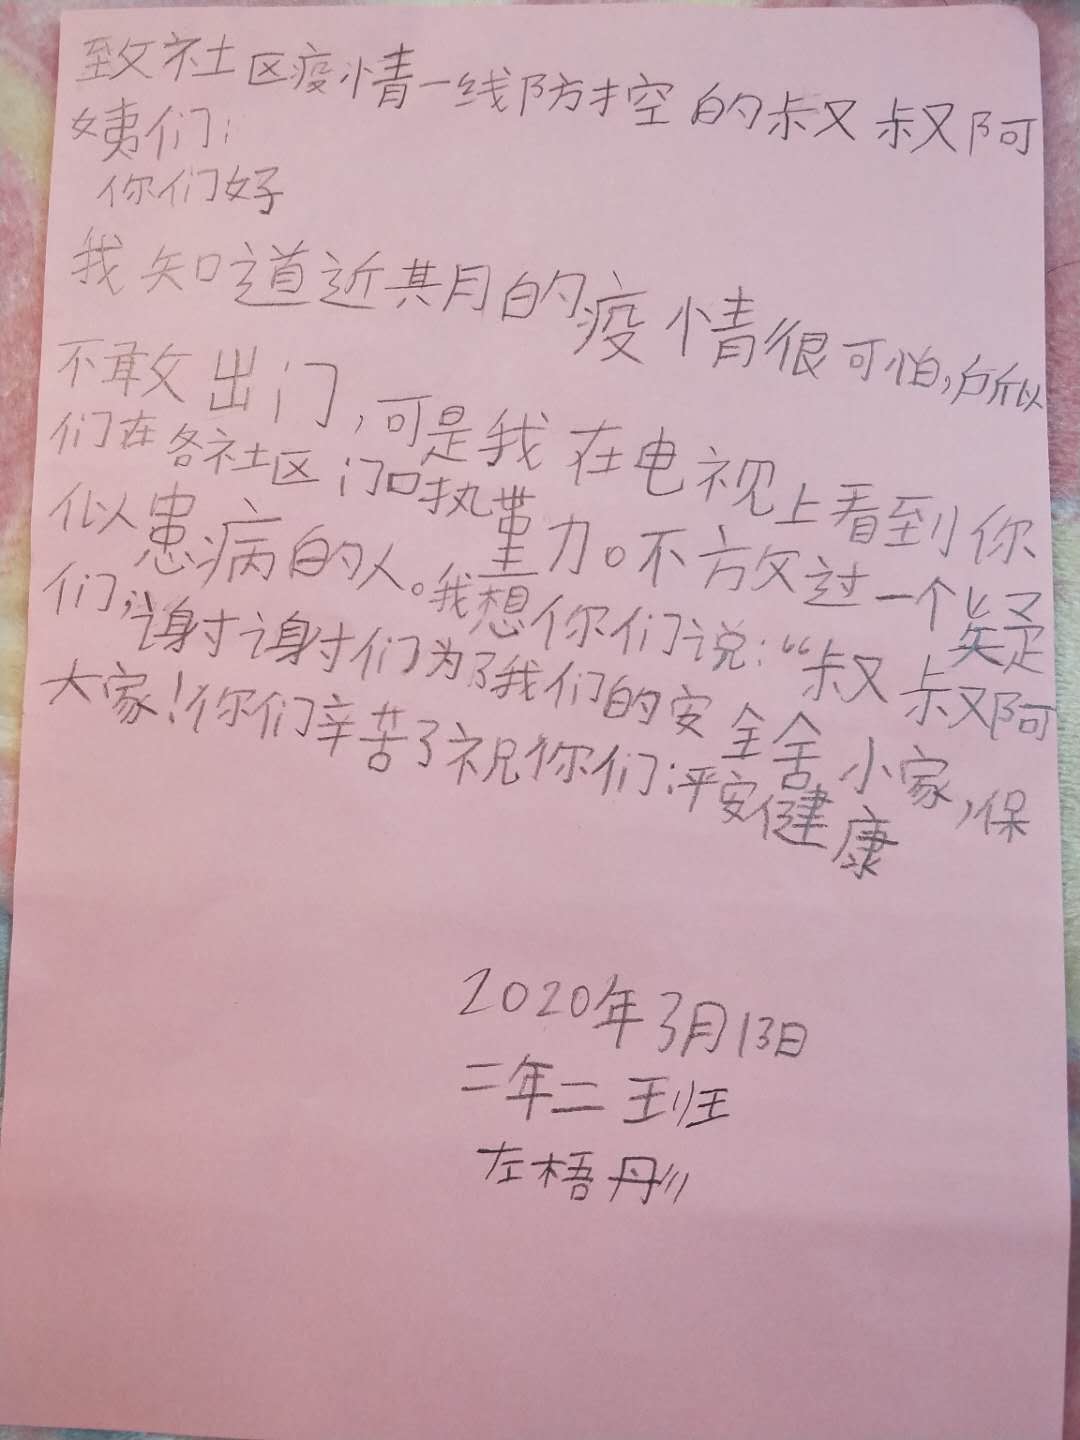 致社区疫情一线防控的叔叔阿
姨们：
你们好
我知道近其月的疫情很可怕，所以
不敢出门，可是我在电视上看到你
们在各社区门口执董力。不放过一个疑
似患病的人。我想你们说：“叔叔阿
们，谢谢们为了我们的安全舍小家，保
大家！你们辛苦了祝你们：平安健康
2020年3月13日
二年二班
左梧彤